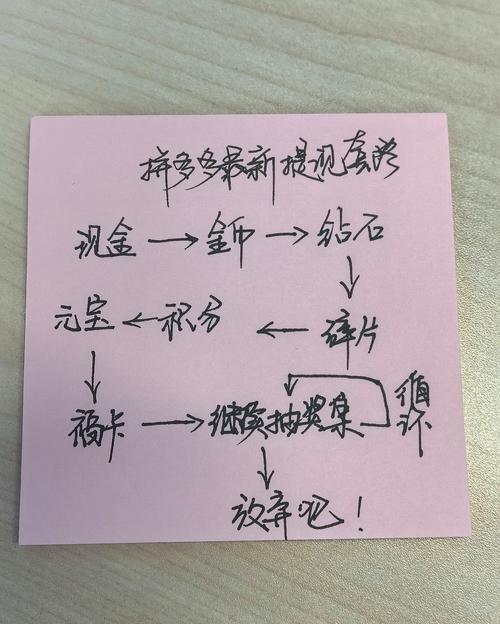 拼多多最新提现套路
现金→金币→钻石
↓
元宝←积分←碎片
↓
福卡→继续抽奖集 循环
↓
放弃吧！